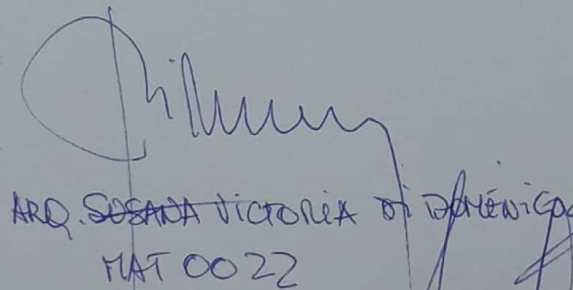 ARQ. SUSANA VICTORIA DI DOMÉNICO
MAT 0022